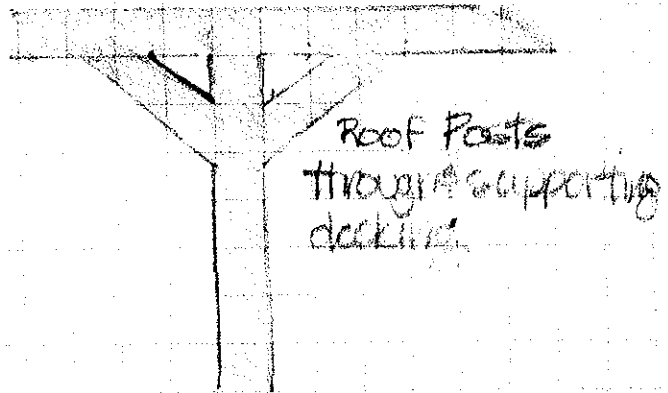 Roof Posts
through & supporting
decking